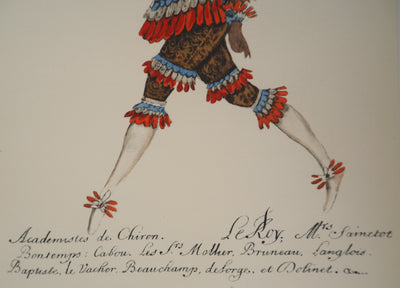 Academistes de Chiron. Le Roy, Mrs Sainctot
Bontemps: Cabou. Les Srs Mollier, Bruneau, Langlois.
Baptiste, le Vacher, Beauchamp, de Lorge, et Dolinet.